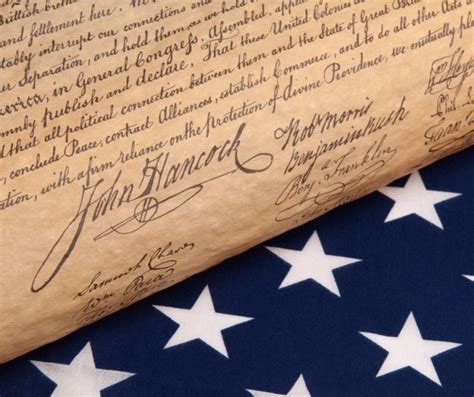 Brittish
and settlement here. We have
itably interrupt our connections and
our Separation, and hold them as we hold
in General Congress, Assembled, appeal
mnly publish and declare, That these United Colonies are
d that all political connection between them and the State of Great
conclude Peace, contract Alliances, establish Commerce, and to do all other Acts
ration, with a firm reliance on the protection of divine Providence, we mutually
John Hancock
Robt Morris
Benjamin Rush
Benj. Franklin
Samuel Chase
Wm Paca